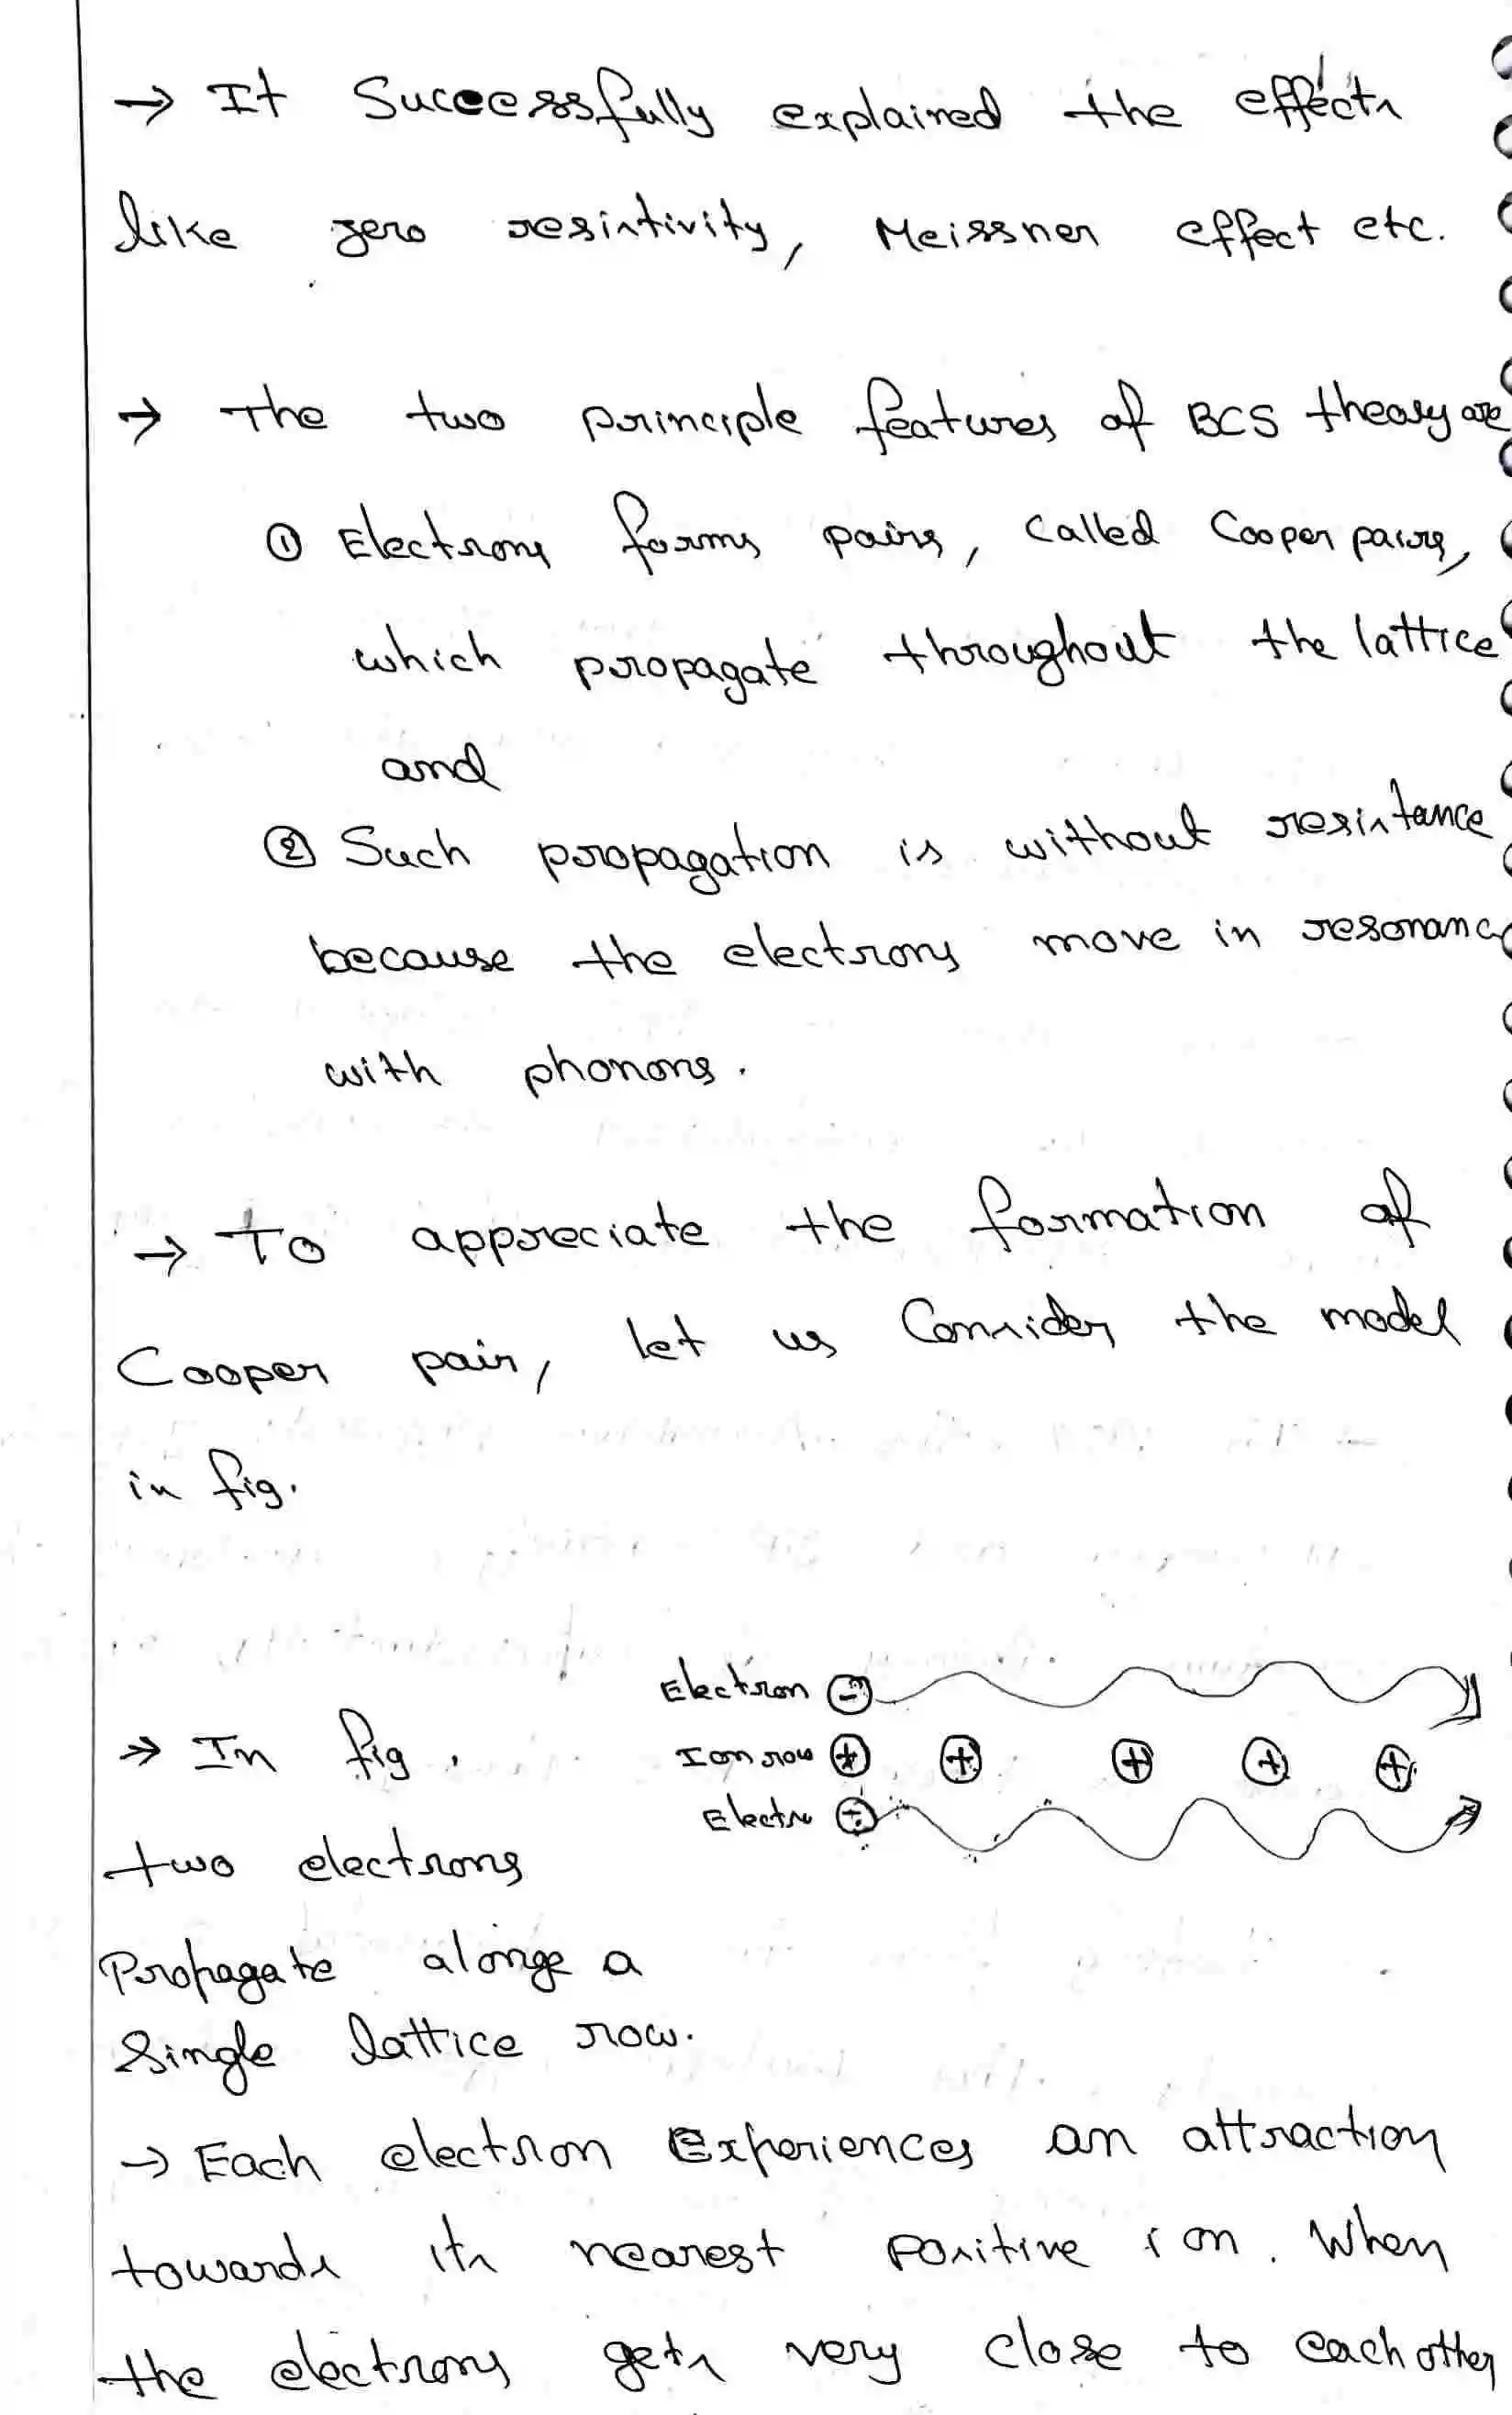 → It Successfully explained the effects
like zero resistivity, Meissner effect etc.
→ The two principle features of BCS theory are
① Electrons forms pairs, called Cooper pairs,
which propagate throughout the lattice
and
② Such propagation is without resistance
because the electrons move in resonance
with phonons.
→ To appreciate the formation of
Cooper pair, let us Consider the model
in fig.
Electron ⊖
Ion row ⊕ ⊕ ⊕ ⊕ ⊕
Electro
→ In fig.
two electrons
Propagate alonge a
Single lattice row.
→ Each electron Experiences an attraction
towards its nearest positive ion. When
the electrons gets very close to each other